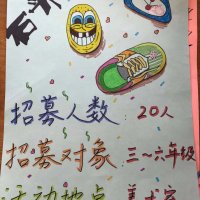 石
招募人数 20人
招募对象 三~六年级
活动地点 美术室